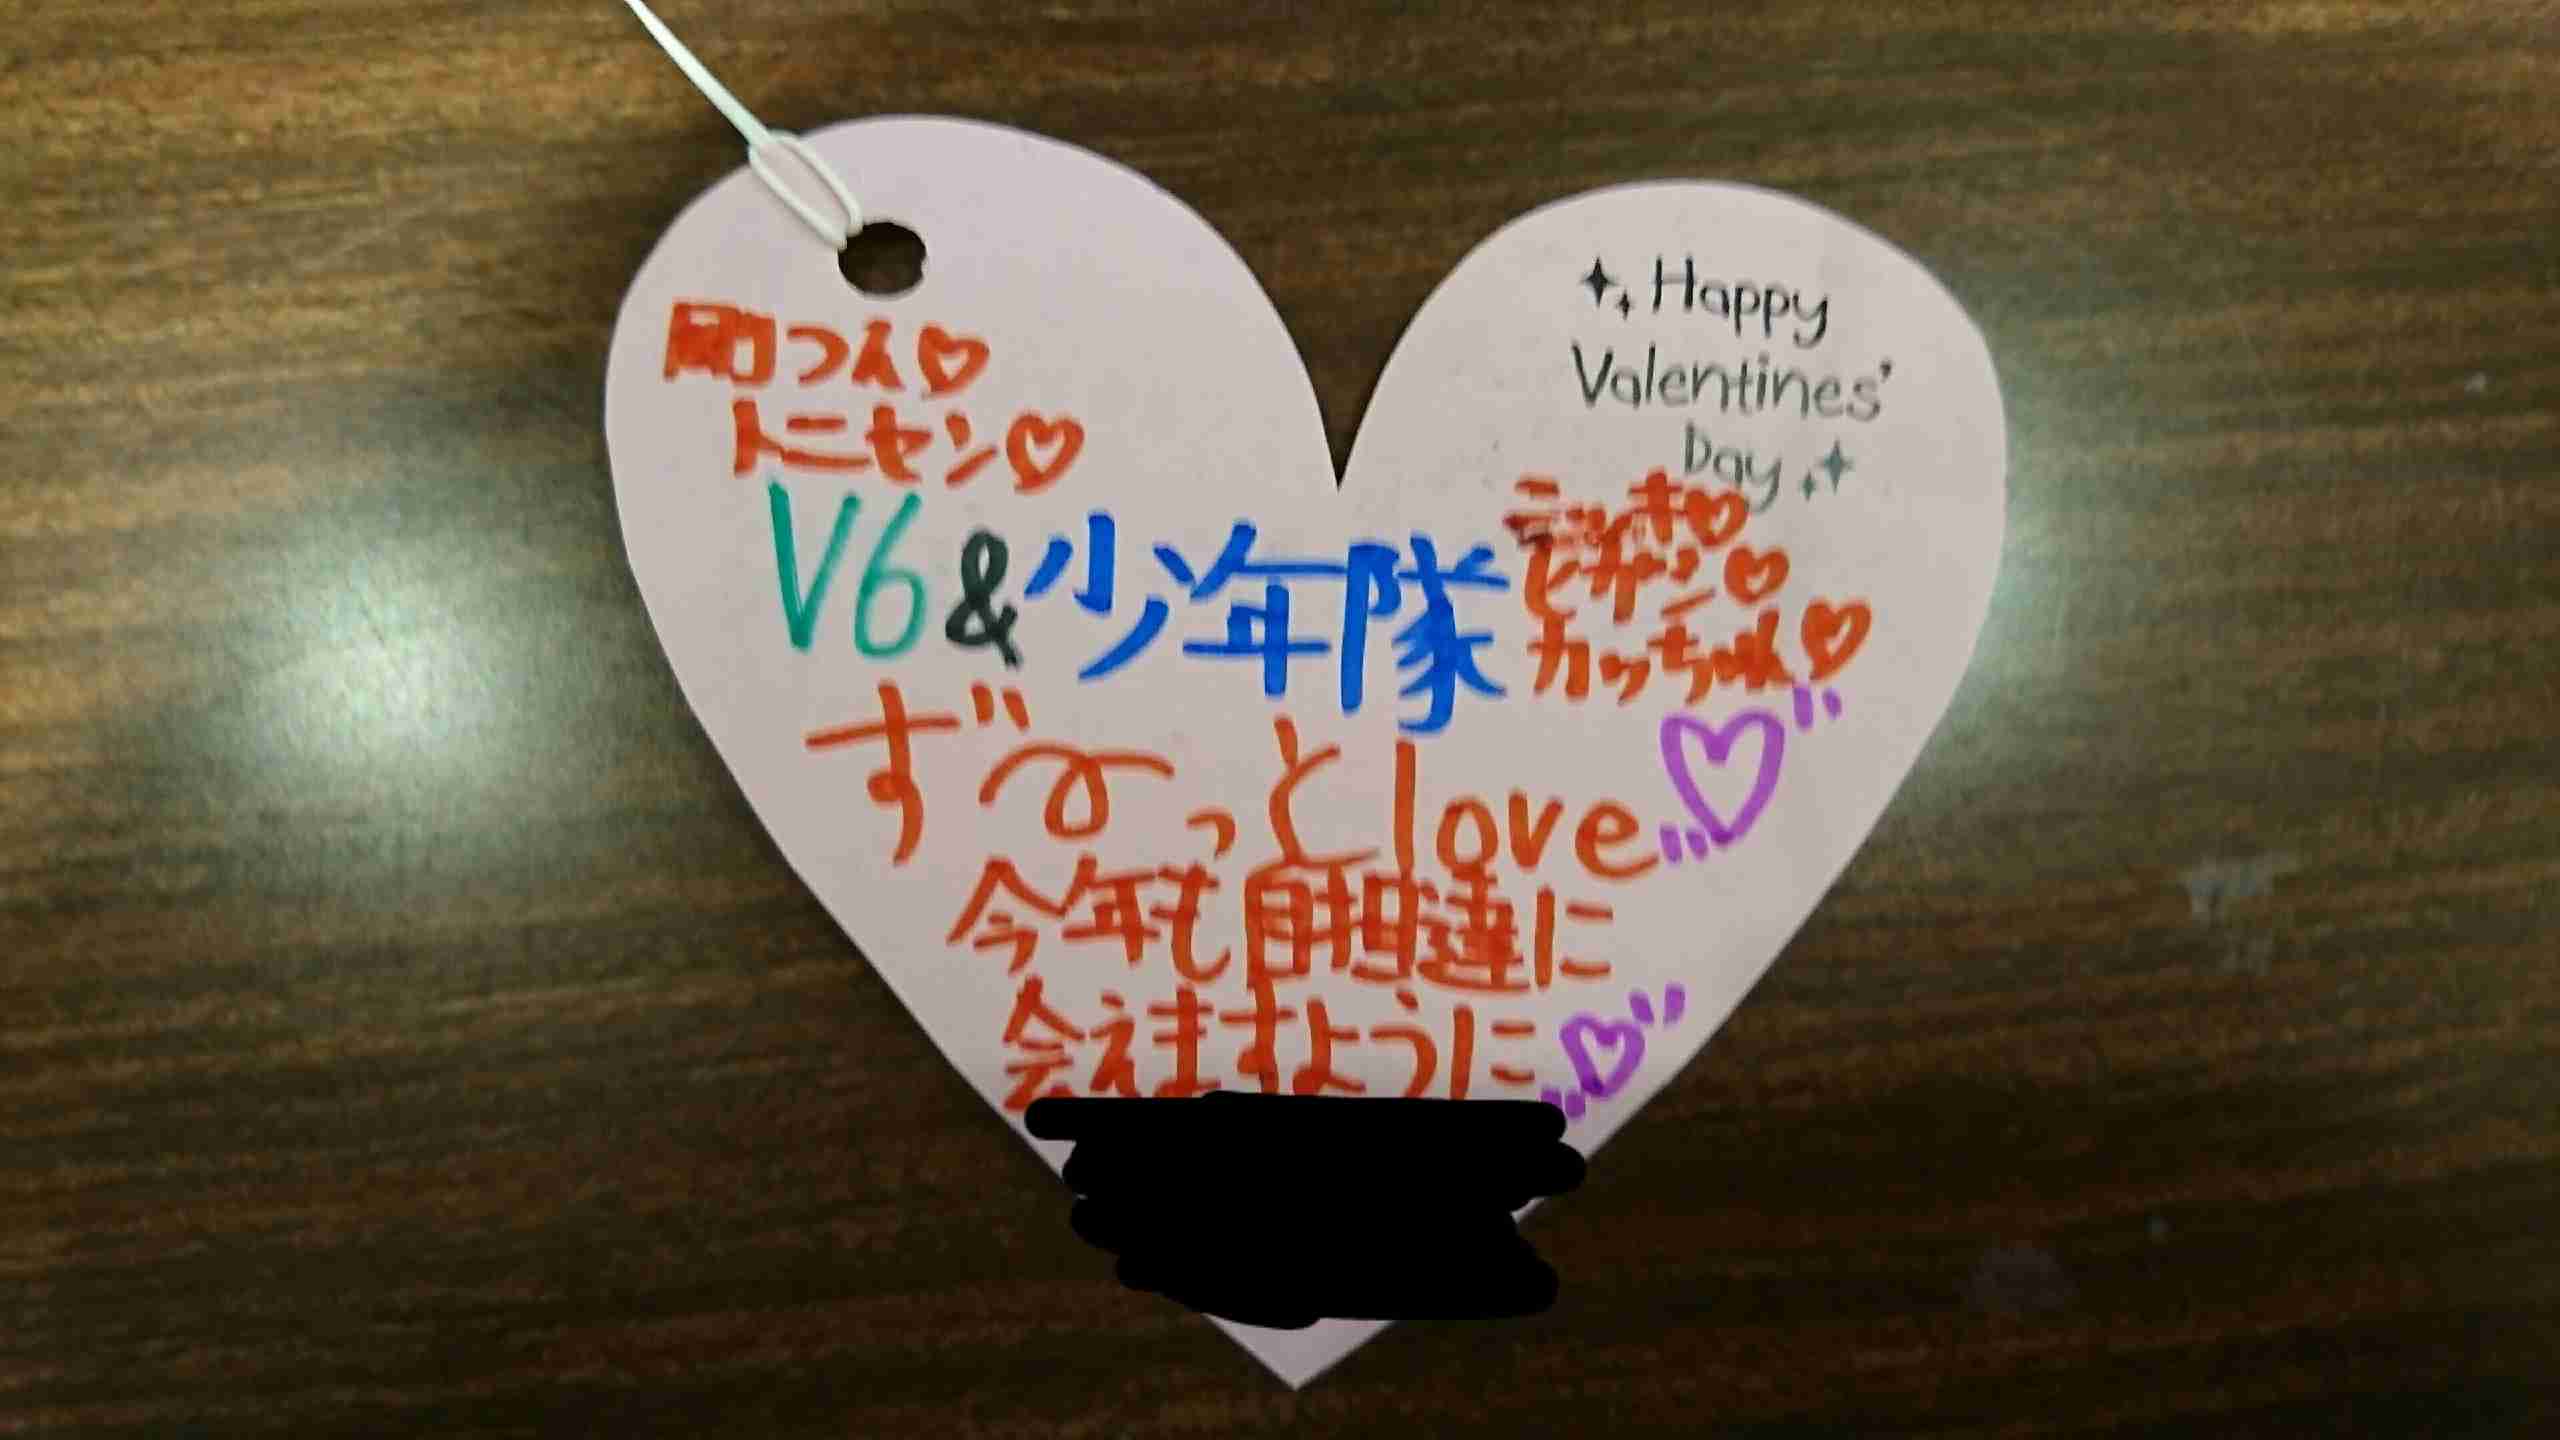 Happy
Valentines'
Day
剛つん♡
トニセン♡
V6&少年隊
ニッキ♡
ヒガシ♡
カッちゃん♡
ず〜っとlove♡
今年も自担達に
会えますように♡